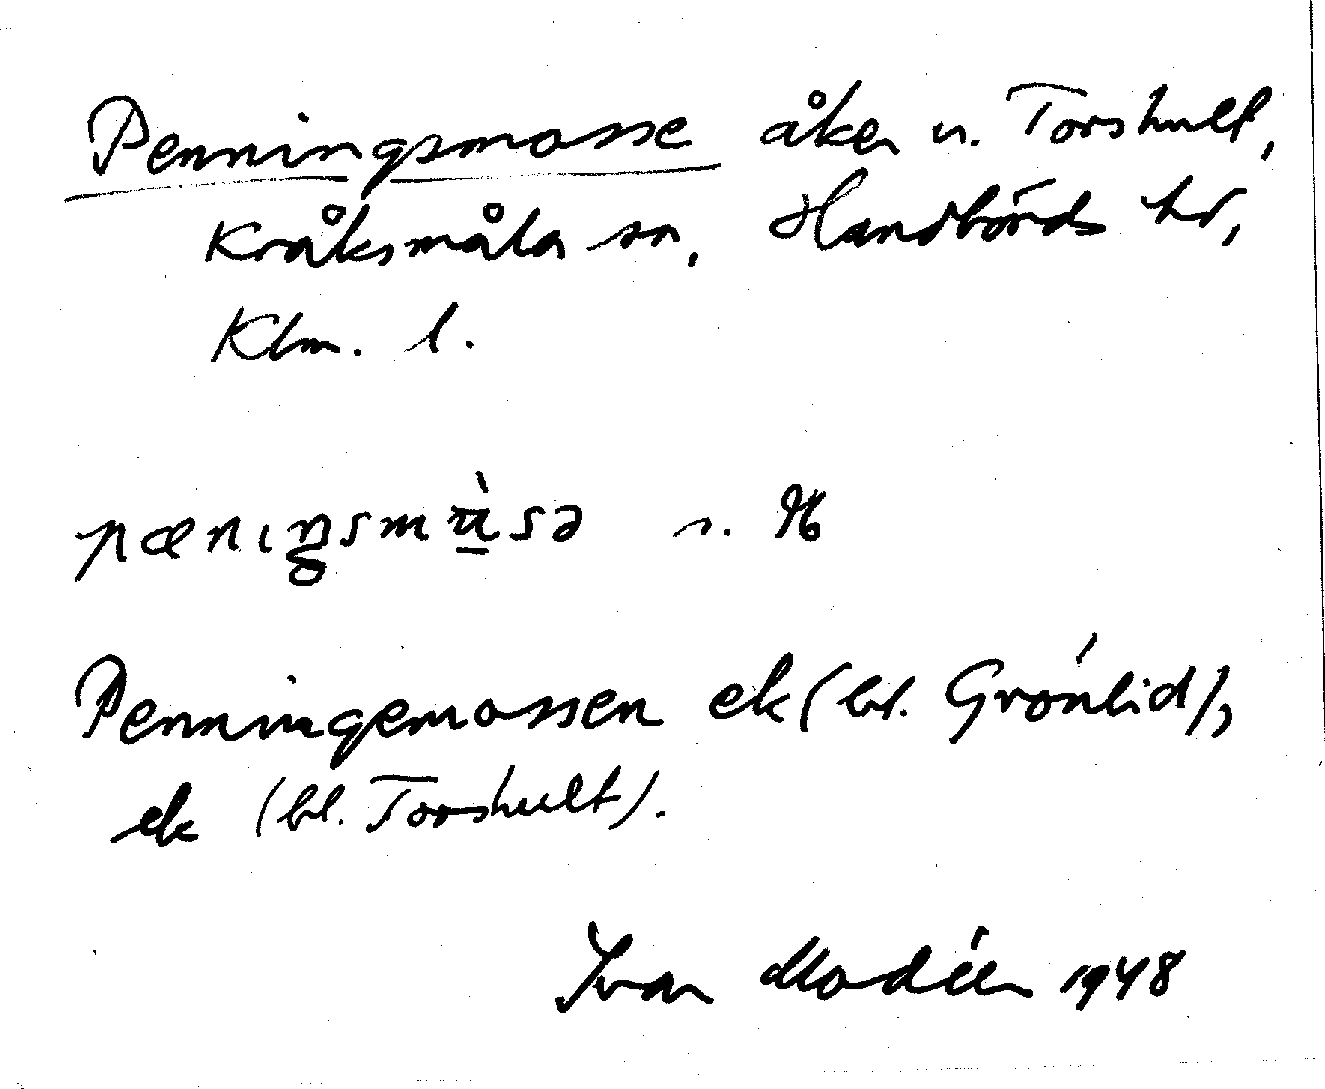 Penningsmosse åker u. Torshult,
Kråksmåla sn, Handbörds hd,
Klm. l.
pæniŋsmùsə s.
Penningemossen ek (bl. Grönlid),
ek (bl. Torshult).
Ivar Modéer 1948